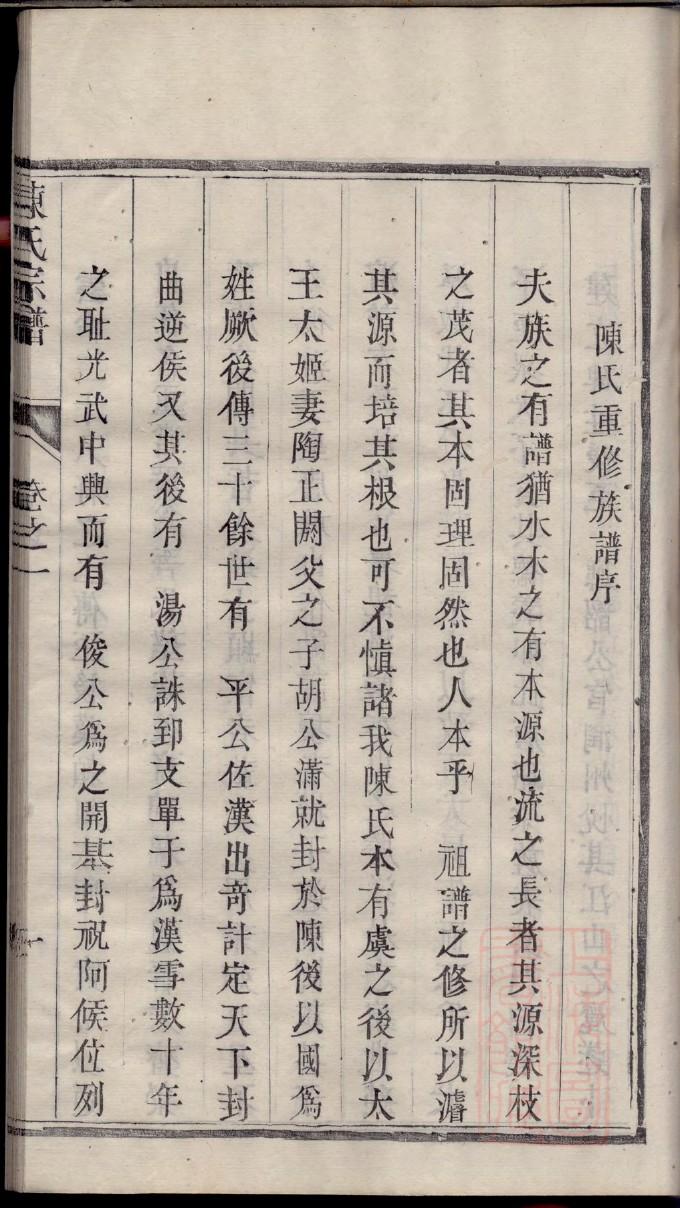 陳氏重修族譜序
夫族之有譜猶水木之有本源也流之長者其源深枝
之茂者其本固理固然也人本乎　祖譜之修所以濬
其源而培其根也可不愼諸我陳氏本有虞之後以太
王太姬妻陶正閼父之子胡公滿就封於陳後以國爲
姓厥後傳三十餘世有　平公佐漢出竒計定天下封
曲逆侯又其後有　湯公誅郅支單于爲漢雪數十年
之耻光武中興而有　俊公爲之開基封祝阿侯位列
陳氏宗譜　卷之一